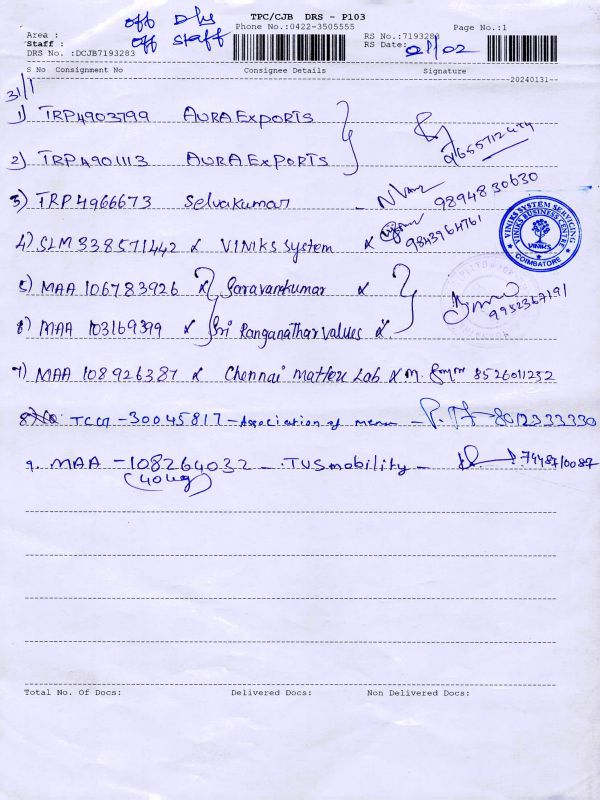 off Drs
TPC/CJB DRS - P103
Phone No.:0422-3505555
Page No.:1
Area :
RS No.:7193283
Staff :
off staff
RS Date:
01/02
DRS No. :DCJB7193283
S No Consignment No Consignee Details Signature
20240131
31/1
1) TRP4903799 AURA ExpORTS
2) TRP4901113 AURA ExpORTS
3) TRP4966673 Selvakumar - 9894830630
4) SLM 338571442 & VINIKS System & 9843964761
VINIKS SYSTEM SERVICING
VINIKS BUSINESS CENTRE
VINIKS
COIMBATORE
5) MAA 106783926 & Saravankumar &
9952367191
6) MAA 103169399 & Sri Ranganathar values &
7) MAA 108926387 & Chennai Mattex Lab & M. 8526011252
8) TCM - 30045817 - Association of - 8012333330
9. MAA - 108264032 - TVS mobility - 7448710087
(40kg)
Total No. Of Docs: Delivered Docs: Non Delivered Docs: